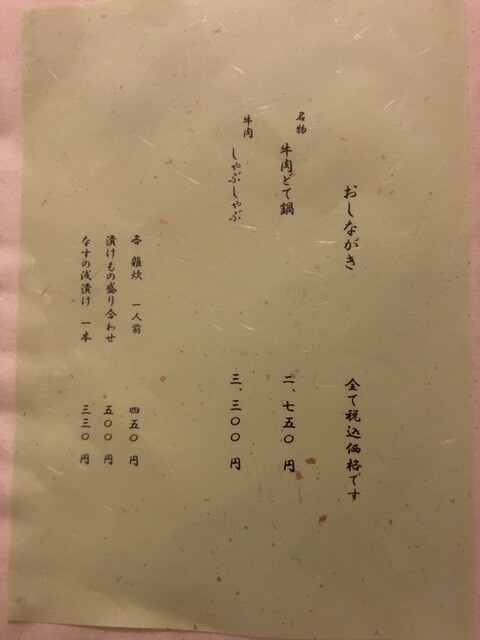 おしながき
全て税込価格です
名物 牛肉どて鍋 二、七五〇 円
牛肉 しゃぶしゃぶ 三、三〇〇 円
各 雑炊 一人前 四五〇 円
漬けもの盛り合わせ 五〇〇 円
なすの浅漬け 一本 三三〇 円